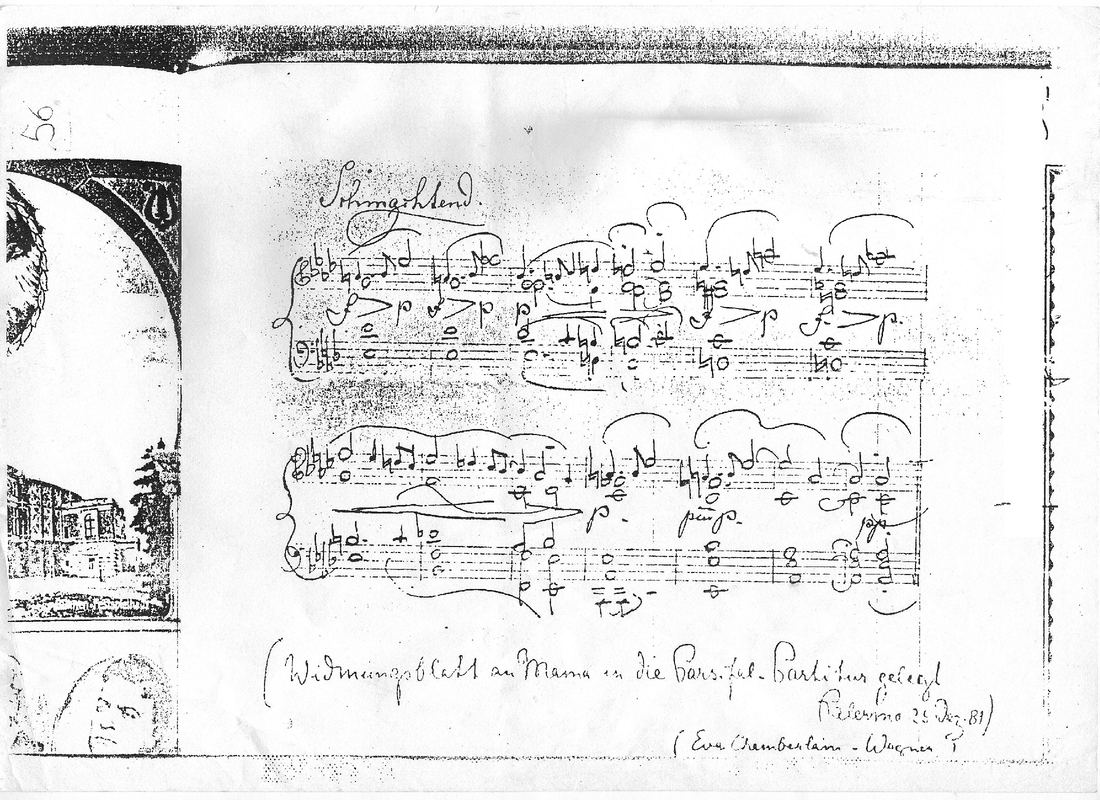 56
Schmachtend.
f > p f > p p f > p f > p.
p. più p. pp.
(Widmungsblatt an Mama in die Parsifal-Partitur gelegt
Palermo 25 Dez. 81)
(Eva Chamberlain-Wagner